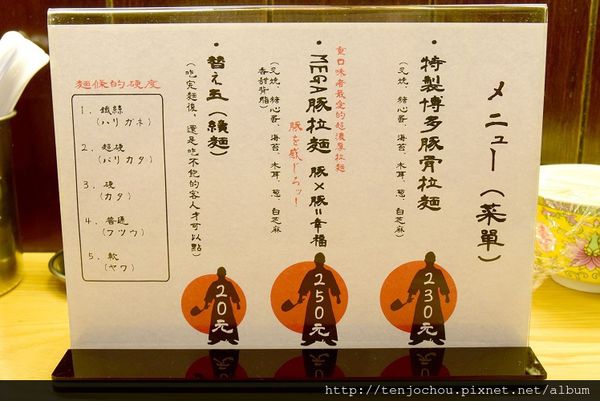 メニュー(菜單)
・特製博多豚骨拉麵
(叉燒、糖心蛋、海苔、木耳、蔥、白芝麻)
230元
重口味者最愛的超濃厚拉麵
・MEGA豚拉麵 豚×豚=幸福
豚を感じろッ!
(叉燒、糖心蛋、海苔、木耳、蔥、白芝麻
香甜背脂)
250元
・替え玉(續麵)
(吃完麵後,還是吃不飽的客人才可以點)
20元
麵條的硬度
1. 鐵絲
(ハリガネ)
2. 超硬
(バリカタ)
3. 硬
(カタ)
4. 普通
(フツウ)
5. 軟
(ヤワ)
http://tenjochou.pixnet.net/album